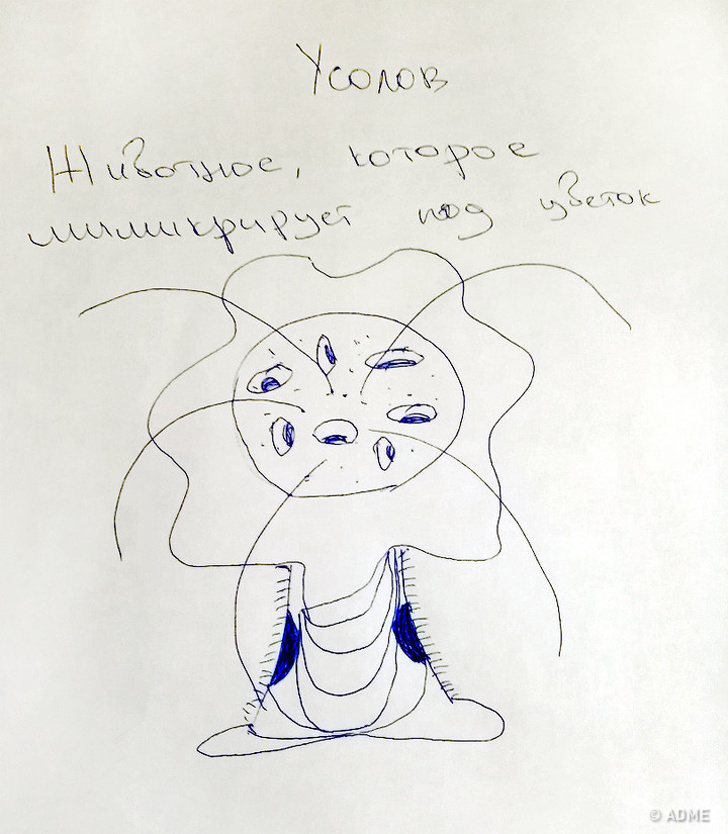 Усолов
Животное, которое
мимикрирует под цветок
© ADME